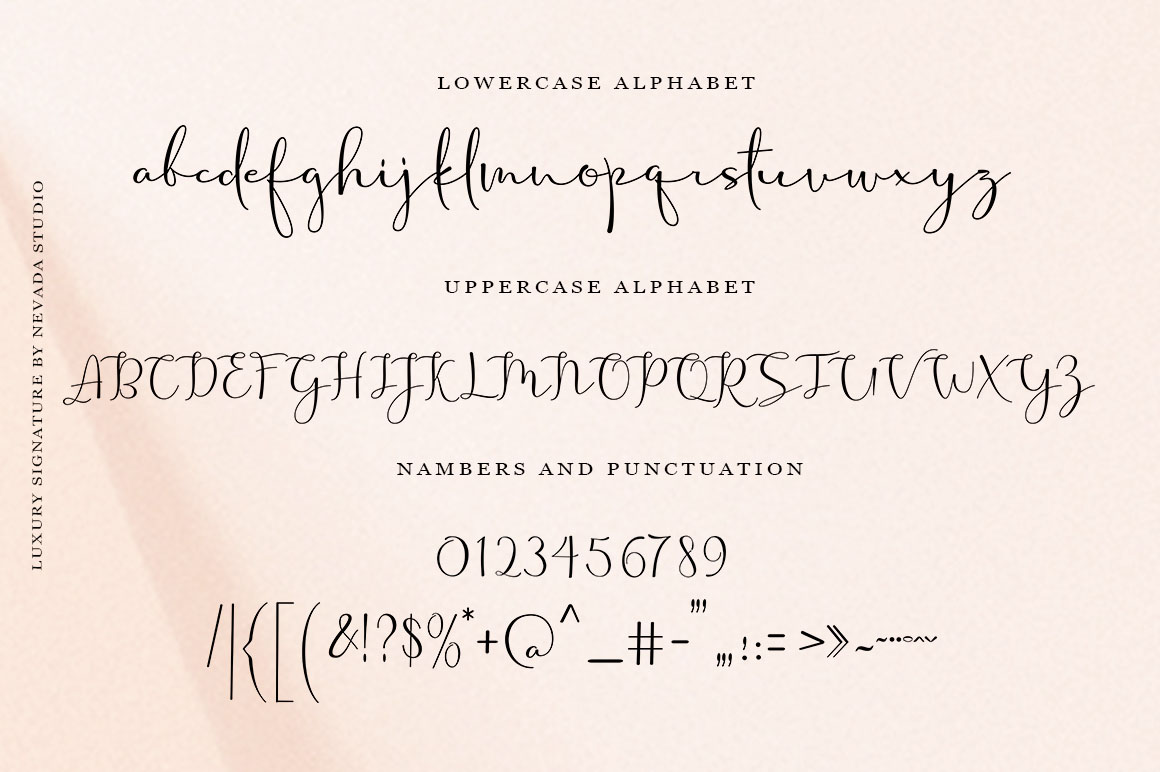 LOWERCASE ALPHABET
abcdefghijklmnopqrstuvwxyz
UPPERCASE ALPHABET
ABCDEFGHIJKLMNOPQRSTUVWXYZ
NAMBERS AND PUNCTUATION
0123456789
/|{[(&!?$%*+@^_#-"',,,!:=>»~~¨°^˘
LUXURY SIGNATURE BY NEVADA STUDIO